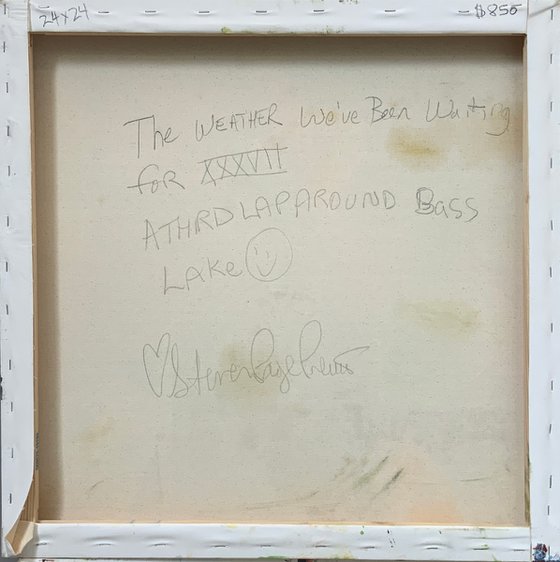 24x24
$850
The WEATHER We've Been Waiting
for XXXVII
A THRD LAP AROUND Bass
LAKe
Steven Page Prewitt